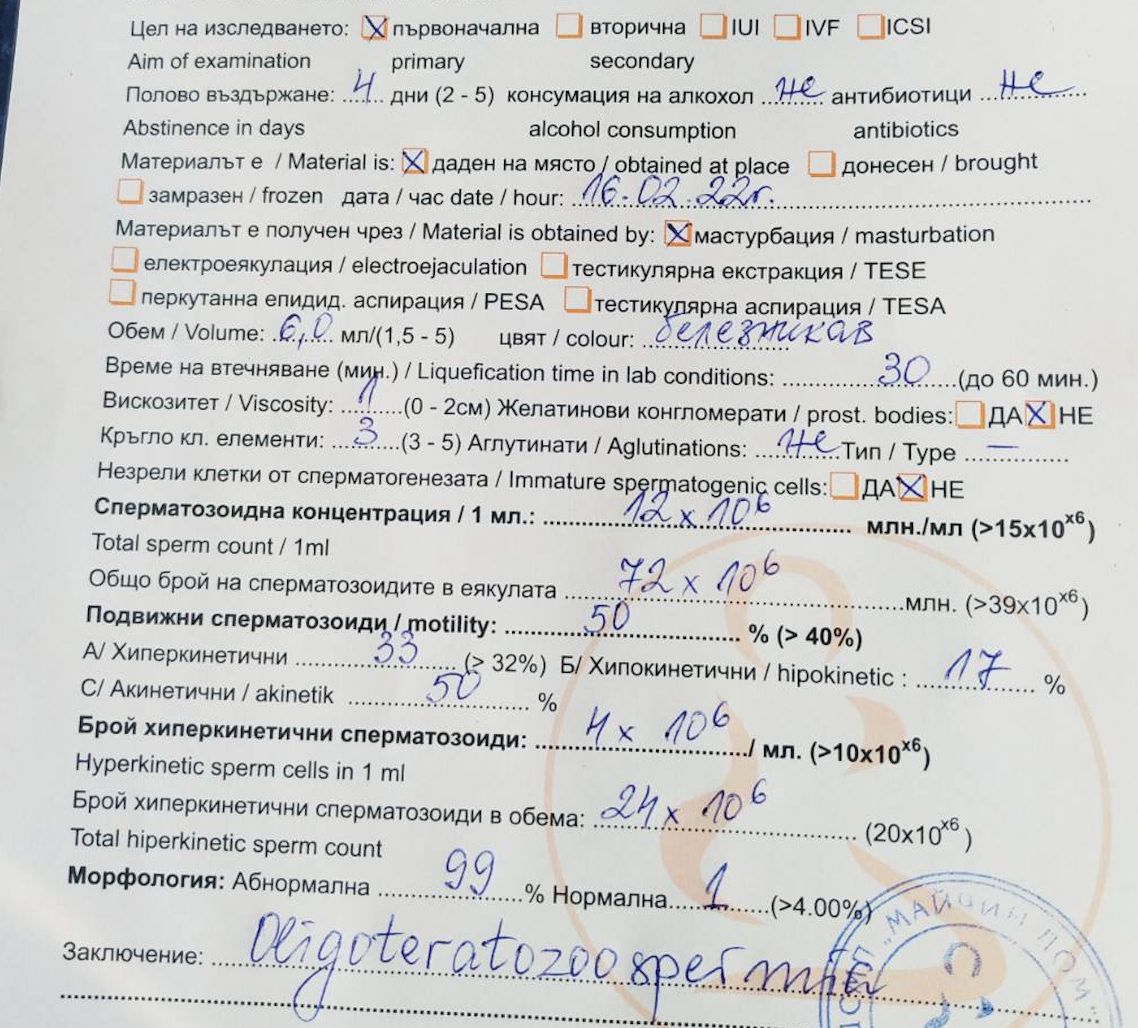 Цел на изследването: X първоначална вторична IUI IVF ICSI
Aim of examination primary secondary
Полово въздържане: 4 дни (2 - 5) консумация на алкохол не антибиотици не
Abstinence in days alcohol consumption antibiotics
Материалът е / Material is: X даден на място / obtained at place донесен / brought
замразен / frozen дата / час date / hour: 16.02.22г.
Материалът е получен чрез / Material is obtained by: X мастурбация / masturbation
електроеякулация / electroejaculation тестикулярна екстракция / TESE
перкутанна епидид. аспирация / PESA тестикулярна аспирация / TESA
Обем / Volume: 6,0 мл/(1,5 - 5) цвят / colour: белезникав
Време на втечняване (мин.) / Liquefication time in lab conditions: 30 (до 60 мин.)
Вискозитет / Viscosity: 1 (0 - 2см) Желатинови конгломерати / prost. bodies: ДА X НЕ
Кръгло кл. елементи: 3 (3 - 5) Аглутинати / Aglutinations: не Тип / Type —
Незрели клетки от сперматогенезата / Immature spermatogenic cells: ДА X НЕ
Сперматозоидна концентрация / 1 мл.: 12 x 10⁶ млн./мл (>15x10ˣ⁶)
Total sperm count / 1ml
Общо брой на сперматозоидите в еякулата 72 x 10⁶ млн. (>39x10ˣ⁶)
Подвижни сперматозоиди / motility: 50 % (> 40%)
А/ Хиперкинетични 33 (> 32%) Б/ Хипокинетични / hipokinetic : 17 %
С/ Акинетични / akinetik 50 %
Брой хиперкинетични сперматозоиди: 4 x 10⁶ / мл. (>10x10ˣ⁶)
Hyperkinetic sperm cells in 1 ml
Брой хиперкинетични сперматозоиди в обема: 24 x 10⁶ (20x10ˣ⁶)
Total hiperkinetic sperm count
Морфология: Абнормална 99 % Нормална 1 (>4.00%)
Заключение: Oligoteratozoospermia
"МАЙЧИН ДОМ"